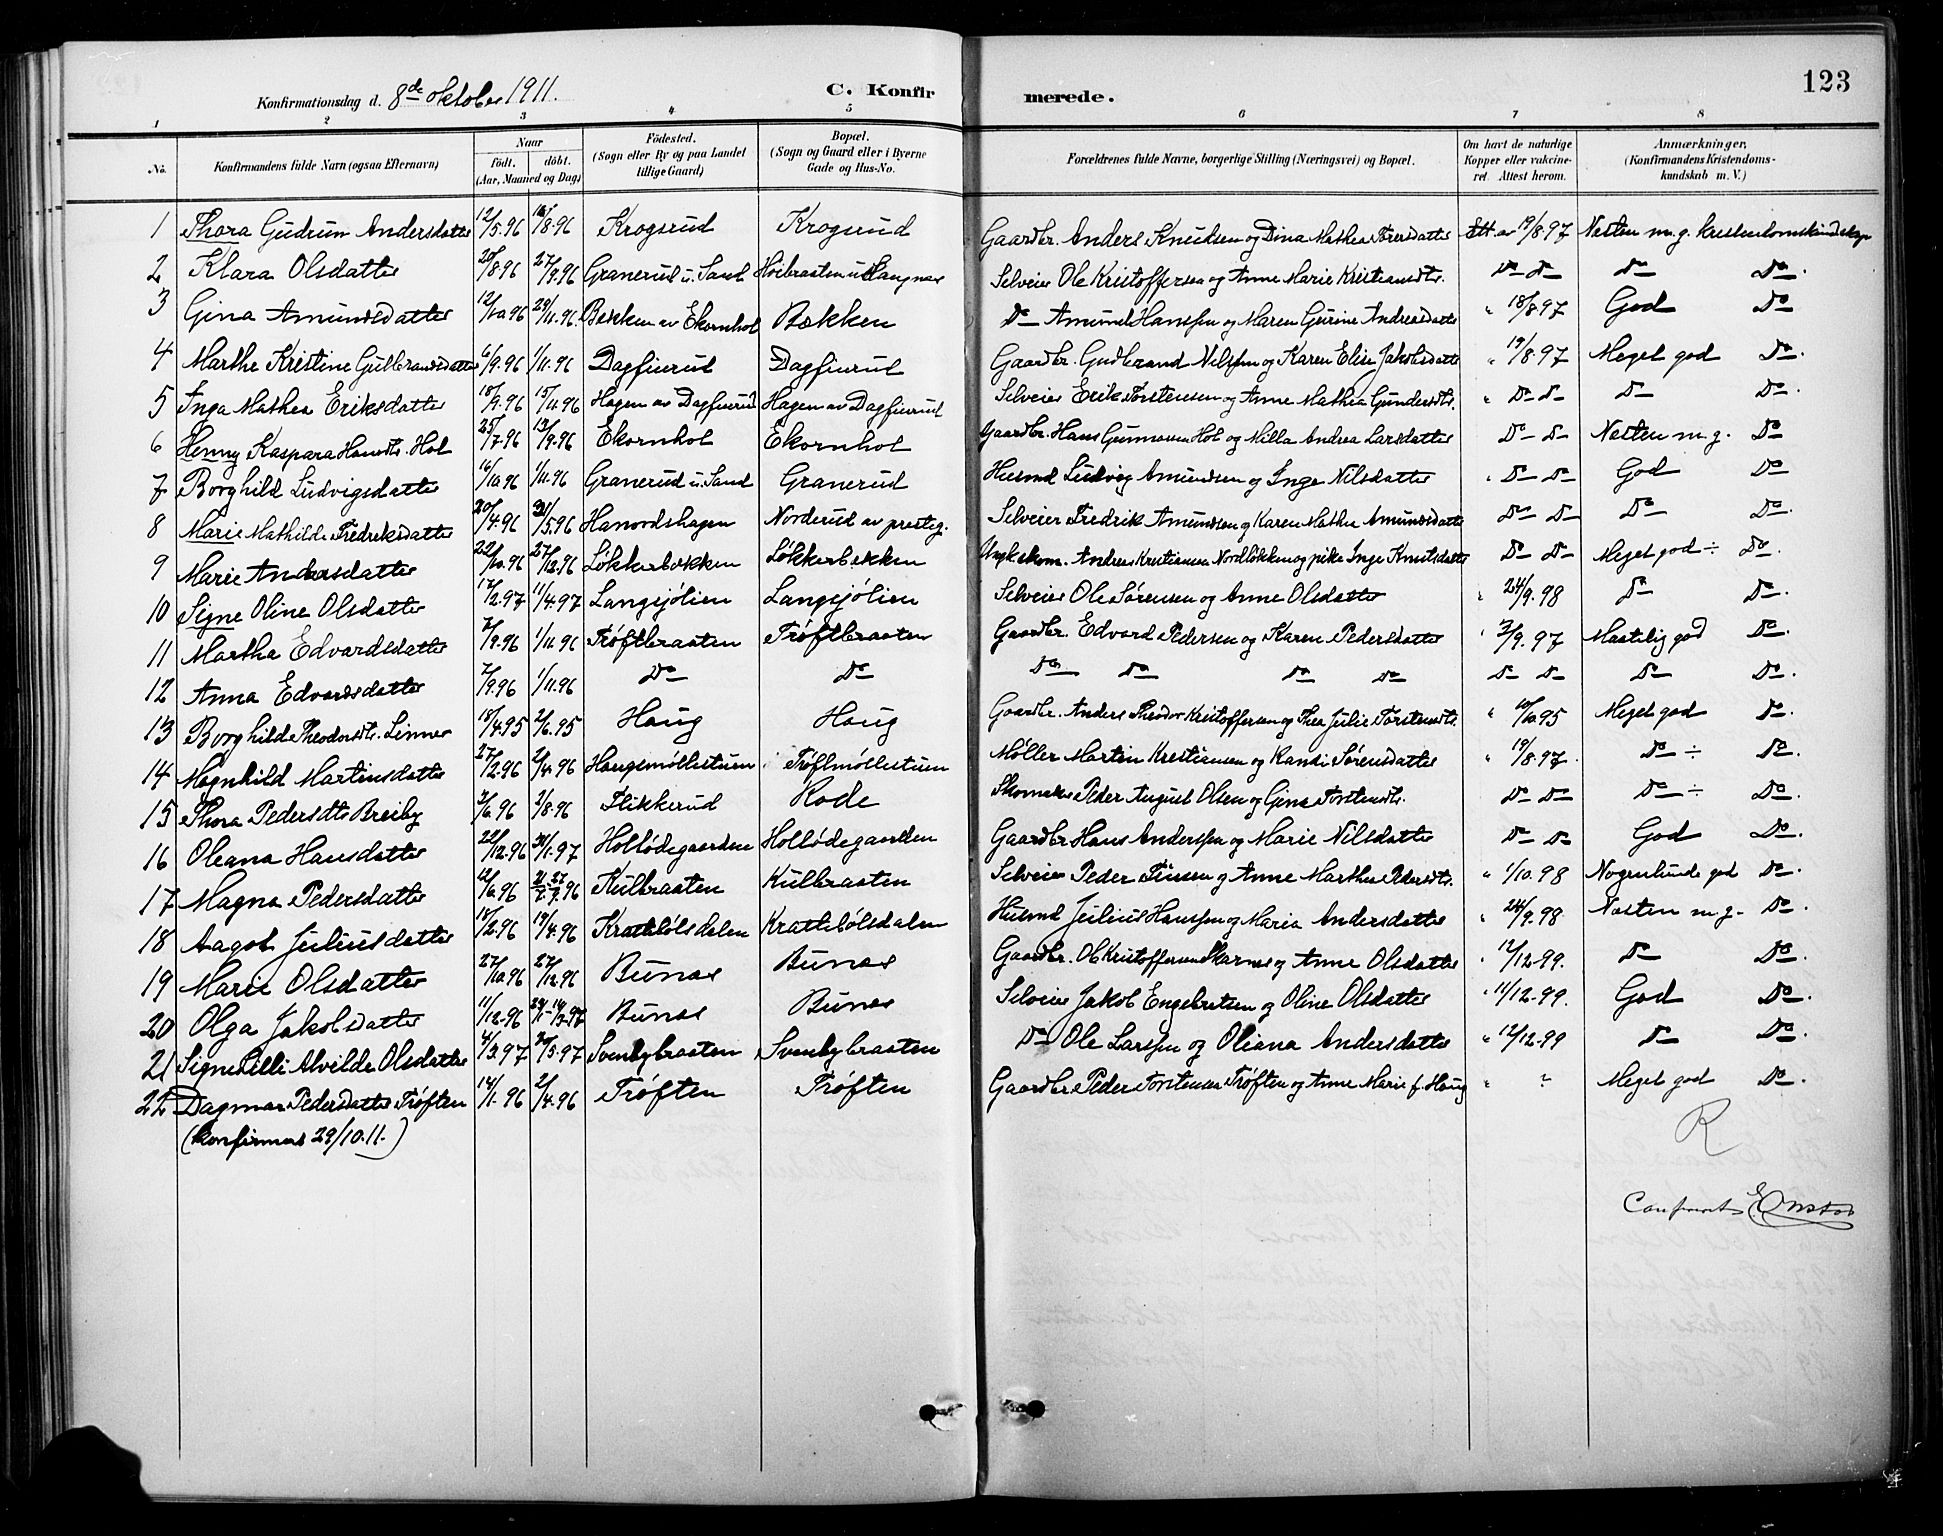 123
Konfirmationsdag d. 8de oktober 1911. C. Konfirmerede.
1 2 3 4 5 6 7 8
No. Konfirmandens fulde Navn (ogsaa Efternavn) Naar født. døbt. (Aar, Maaned og Dag) Fødested. (Sogn eller By og paa Landet tillige Gaard) Bopæl. (Sogn og Gaard eller i Byerne Gade og Hus-No. Forældrenes fulde Navne, borgerlige Stilling (Næringsvei) og Bopæl. Om havt de naturlige Kopper eller vakcineret. Attest herom. Anmærkninger, (Konfirmandens Kristendomskundskab m. V.)
1 Thora Gudrun Andersdatter 12/5.96 /8.96 Krogsrud Krogsrud Gaardbr. Anders Knudsen og Dina Mathea Toresdatter Att. av 19/8 97 Nesten m.g. kristendomskundskap
2 Klara Olsdatter 20/8.96 27/9.96 Granerud u. Sand Høibraaten u. Haugnæs Selveier Ole Kristoffersen og Anne Marie Kristiansdtr. Do Do Do Do.
3 Gina Amundsdatter 12/10 96 29/11.96. Bækken av Ekornhol Bækken Do Amund Hanssen og Maren Gurine Andreasdatter " 18/8 97 God Do
4 Marthe Kristine Gulbrandsdatter 6/9.96 1/11.96 Dagfinrud Dagfinrud Gaardbr. Gudbrand Nilssen og Karen Elise Jakobsdatter " 19/8.97 Meget god Do.
5 Inga Mathea Eriksdatter 18/9.96 15/11.96 Hagen av Dagfinrud Hagen av Dagfinrud Selveier Erik Torstensen og Anne Mathea Gundersdtr. " Do Do Do Do.
6 Henny Kaspara Hansdtr. Hol 25/7.96 13/9.96 Ekornhol Ekornhol Gaardbr. Hans Gunnarsen Hol og Milla Andrea Larsdatter Do Do Nesten m.g. Do
7 Borghild Ludvigsdatter 16/10.96 1/11.96 Granerud u. Sand Granerud Husmd Ludvig Amundsen og Inge Nilsdatter " Do Do God Do
8 Marie Mathilde Fredriksdatter 20/4.96 31/5.96 Hanordshagen Norderud av presteg. Selveier Fredrik Amundsen og Karen Mathea Amundsdatter Do Do Do Do.
9 Marie Andreasdatter 22/10.96 27/12.96 Løkkerbækken Løkkerbækken Ungkskom. Andreas Kristiansen Nordløkken og pike Inge Knutsdatter Do Do Meget god ÷ Do.
10 Signe Oline Olsdatter 17/2.97 11/4.97 Langsjølien Langsjølien Selveier Ole Sørensen og Anne Olsdatter " 24/9.98 Do Do.
11 Martha Edvardsdatter 7/9.96 1/11.96 Trøftbraaten Trøftbraaten Gaardbr. Edvard Pedersen og Karen Pedersdatter " 3/9.97 Maatelig god Do.
12 Anna Edvardsdatter 7/9.96 1/11.96 Do Do Do Do Do Do Do Do Do Do.
13 Borghild Theodorsdtr. Linner 18/4.95 2/6.95 Haug Haug Gaardbr. Anders Theodor Kristoffersen og Thea Julie Torstensdtr. " 10/10.95 Meget god Do.
14 Magnhild Martinsdatter 27/2.96 2/4.96 Haugsmøllestuen Trøftmøllestuen Møller Martin Kristiansen og Randi Sørensdatter " 19/8.97. Do ÷ Do.
15 Thora Pedersdtr Breiby 3/6.96 2/8.96 Flikkerud Rode Skomaker Peder August Olsen og Gina Torstensdtr. Do Do Do ÷ Do.
16 Oleana Hansdatter 22/12.96 /1.97 Hollødegaarden Hollødegaarden Gaardbr Hans Anderssen og Marie Nilsdatter Do Do God Do.
17 Magna Pedersdatter 12/6.96 Kulbraaten Kulbraaten Selveier Peder Tinssen og Anne Marthea Pedersdtr. " 1/10.98 Nogenlunde god Do.
18 Aagot Juliusdatter 18/2.96 19/4.96 Krattebølsdalen Krattebølsdalen Husmd Julius Hanssen og Maria Andersdatter " 24/9.98 Nesten m.g. Do.
19 Marie Olsdatter 27/10.96 27/12.96 Bunæs Bunæs Gaardbr. Ole Kristoffersen Skarnes og Anne Olsdatter " 12/12.99. Do Do.
20 Olga Jakobsdatter 11/12.96 Bunæs Bunæs Selveier Jakob Engebretsen og Oline Olsdatter " 11/12.99. God Do.
21 Signe Lilli Alvilde Olsdatter 4/3.97 /5.97 Svenbybraaten Svenbybraaten Do Ole Larssen og Oliana Andersdatter " 12/12.99 Do Do.
22 Dagmar Pedersdatter Trøften 14/1.96 2/4.96 Trøften Trøften Gaardbr. Peder Torstensen Trøften og Anne Marie f. Haug " " Meget god Do.
(konfirmert 29/10.11.)
R